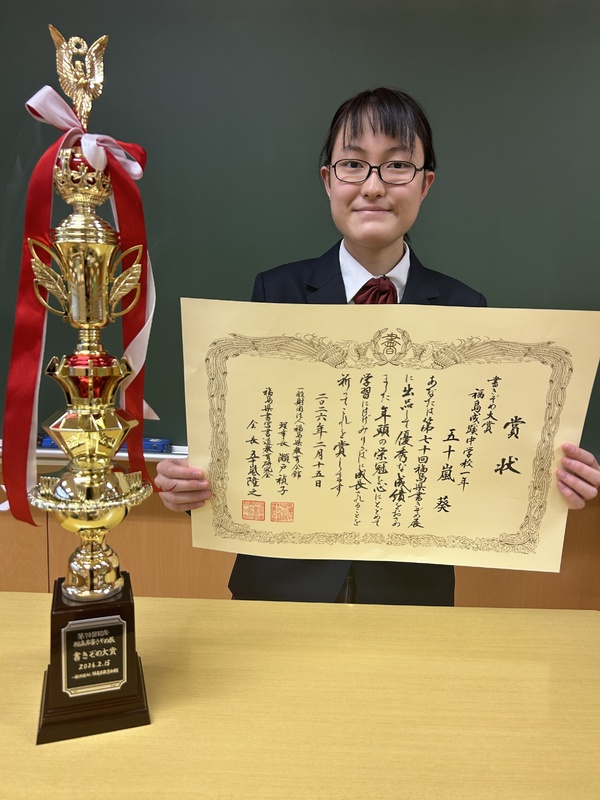 書
賞状
書きぞめ大賞
福島成蹊中学校一年
五十嵐 葵
あなたは第七十回福島県書きぞめ展
に出品して優秀な成績をおさめ
ました 年頭の栄冠を心にとどめて
学習にはげみりっぱに成長されることを
祈ってこれを賞します
二〇二六年二月十五日
一般財団法人福島県教育会館
理事長 瀬戸禎子
福島県書写書道教育研究会
会長 五十嵐隆之
第70回記念
福島県書きぞめ展
書きぞめ大賞
2026.2.15
一般財団法人 福島県教育会館